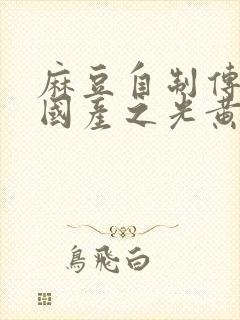 麻豆自制傳
國產之光黃
鳥飛白